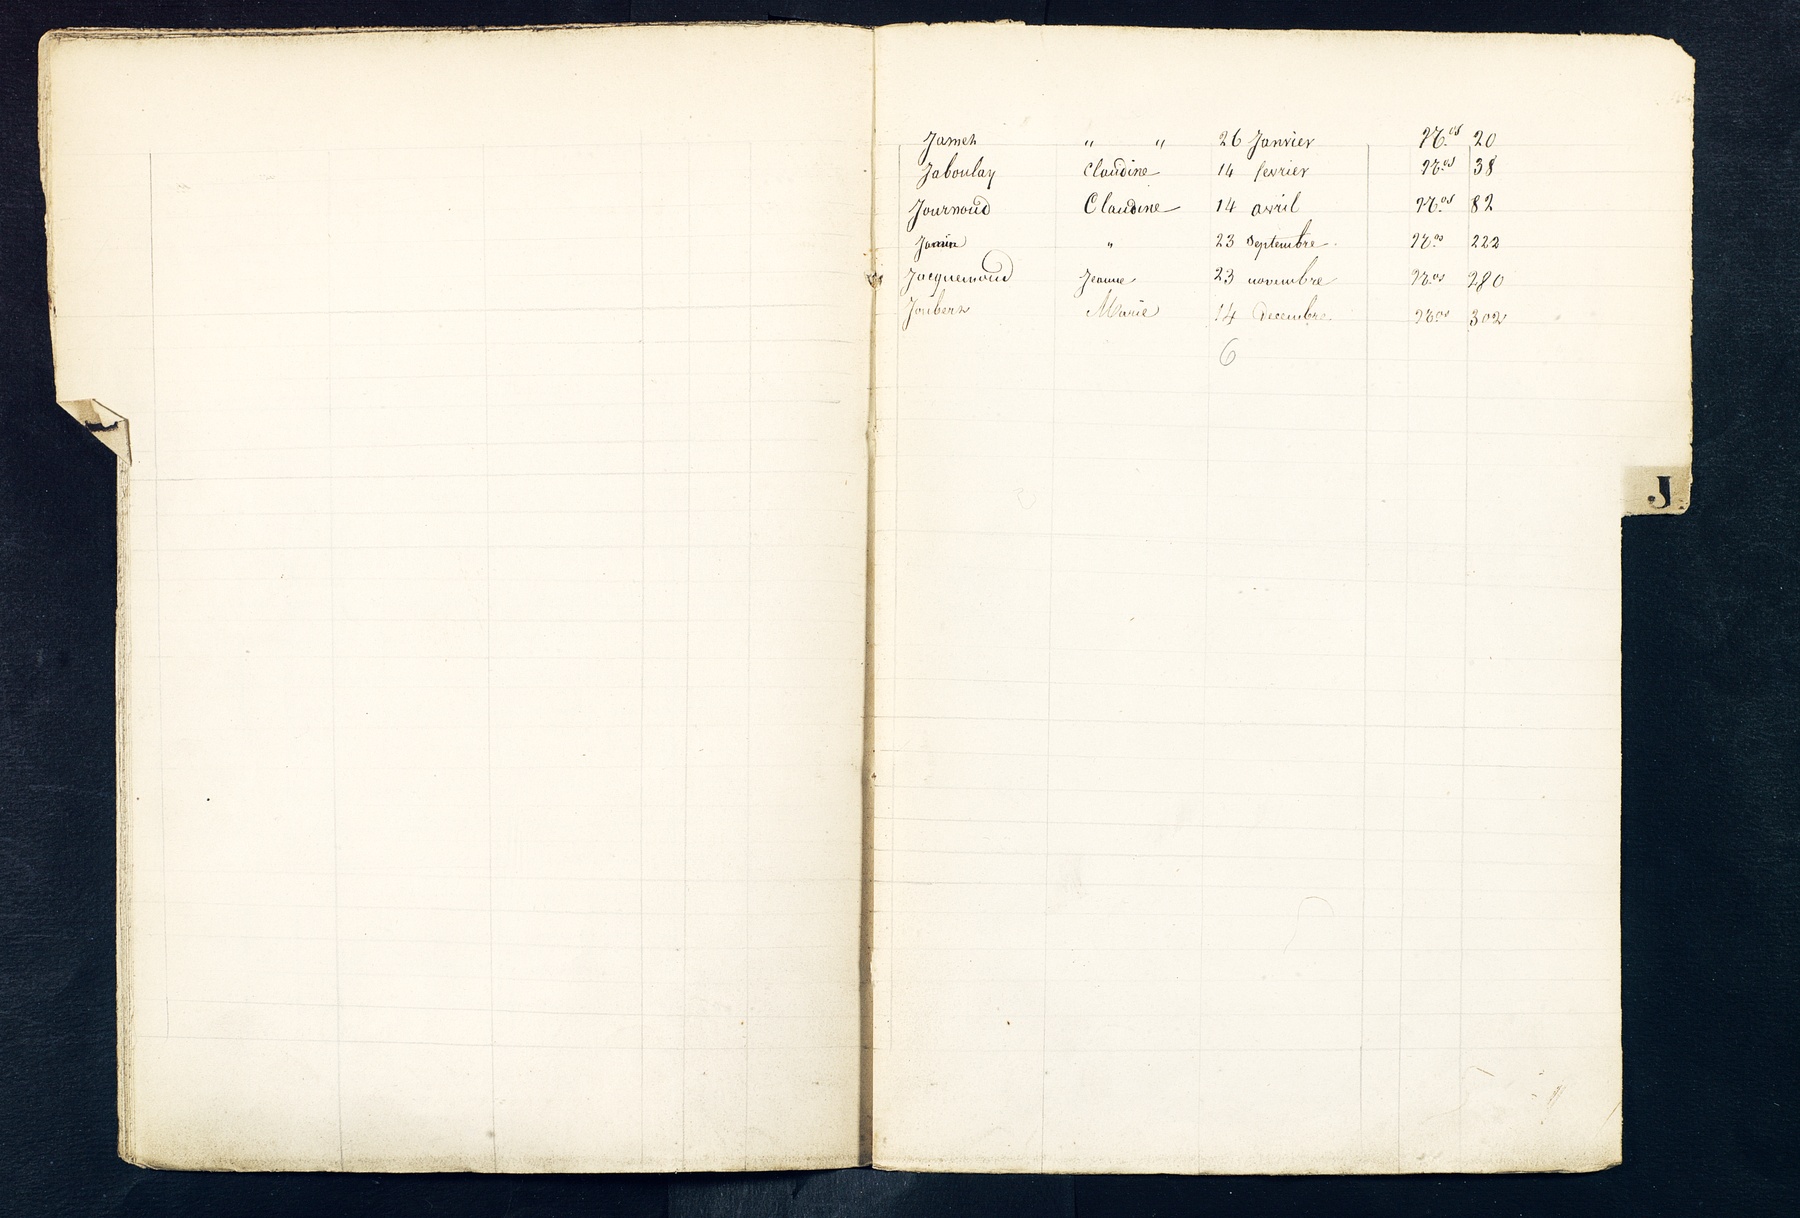 Jamet " " 26 Janvier Nos 20
Jaboulay Claudine 14 fevrier Nos 38
Journoud Claudine 14 avril Nos 82
Janin " 23 septembre. Nos 222
Jacquemoud Jeanne 23 novembre Nos 280
Joubert Marie 14 Decembre. Nos 302
6
J